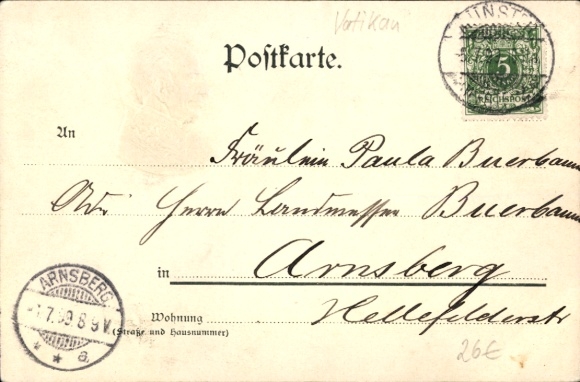 Vatikan
MÜNSTER
Postkarte.
5
REICHSPOST
An
Fräulein Paula Buerbaum
Adr. Herrn Landmesser Buerbaum
in Arnsberg
ARNSBERG
-1.7.99.8-9V.
* * a.
Wohnung Hellefelderstr
(Straße und Hausnummer)
26€